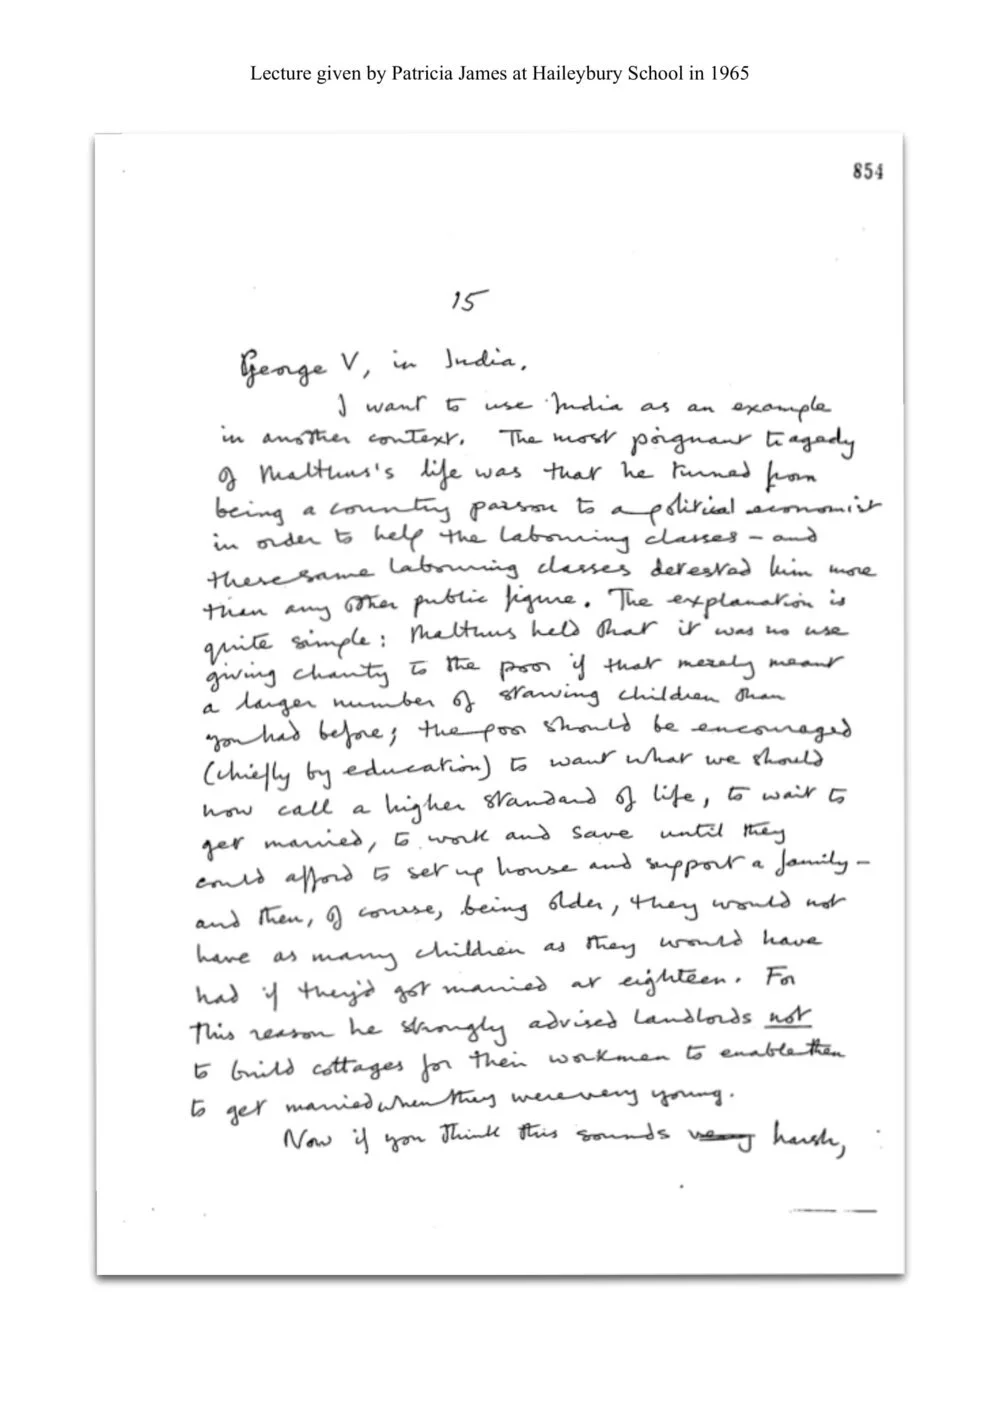 Lecture given by Patricia James at Haileybury School in 1965
854
15
George V, in India.
I want to use India as an example
in another context. The most poignant tragedy
of Malthus's life was that he turned from
being a country parson to a political economist
in order to help the labouring classes – and
these same labouring classes detested him more
than any other public figure. The explanation is
quite simple: Malthus held that it was no use
giving charity to the poor if that merely meant
a larger number of starving children than
you had before; the poor should be encouraged
(chiefly by education) to want what we should
now call a higher standard of life, to wait to
get married, to work and save until they
could afford to set up house and support a family –
and then, of course, being older, they would not
have as many children as they would have
had if they'd got married at eighteen. For
this reason he strongly advised landlords not
to build cottages for their workmen to enable them
to get married when they were very young.
Now if you think this sounds very harsh,